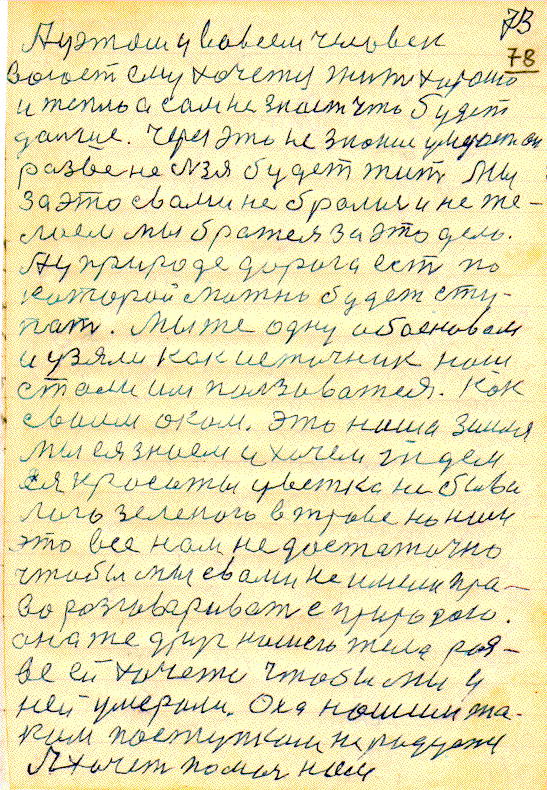 73
78
А у этом у вовсем человек
воюет ему хочется жить хорошо
и тепло а сам не знает что будет
дальше. Через это не знание умирает он
разве нельзя будет жит. Мы
за это свами не бралися и не же-
лаем мы братся за это дело.
А у природе дорога ест по
которой можно будет сту-
пат. Мы же одну обосновали
и узяли как источник наш
стали им ползоватся. Как
своим оком. Это наша земля
мы ея знаем и хочем
ея красоты цветка не быва
лого зеленого в траве но нам
это все нам не достаточно
чтобы мы свами не имели пра-
во розговариват с природою.
она же друг нашего тела раз-
ве ей хочется чтобы мы у
ней умерали. Она нашим та-
ким поступкам не радуется
А хочет помоч нам